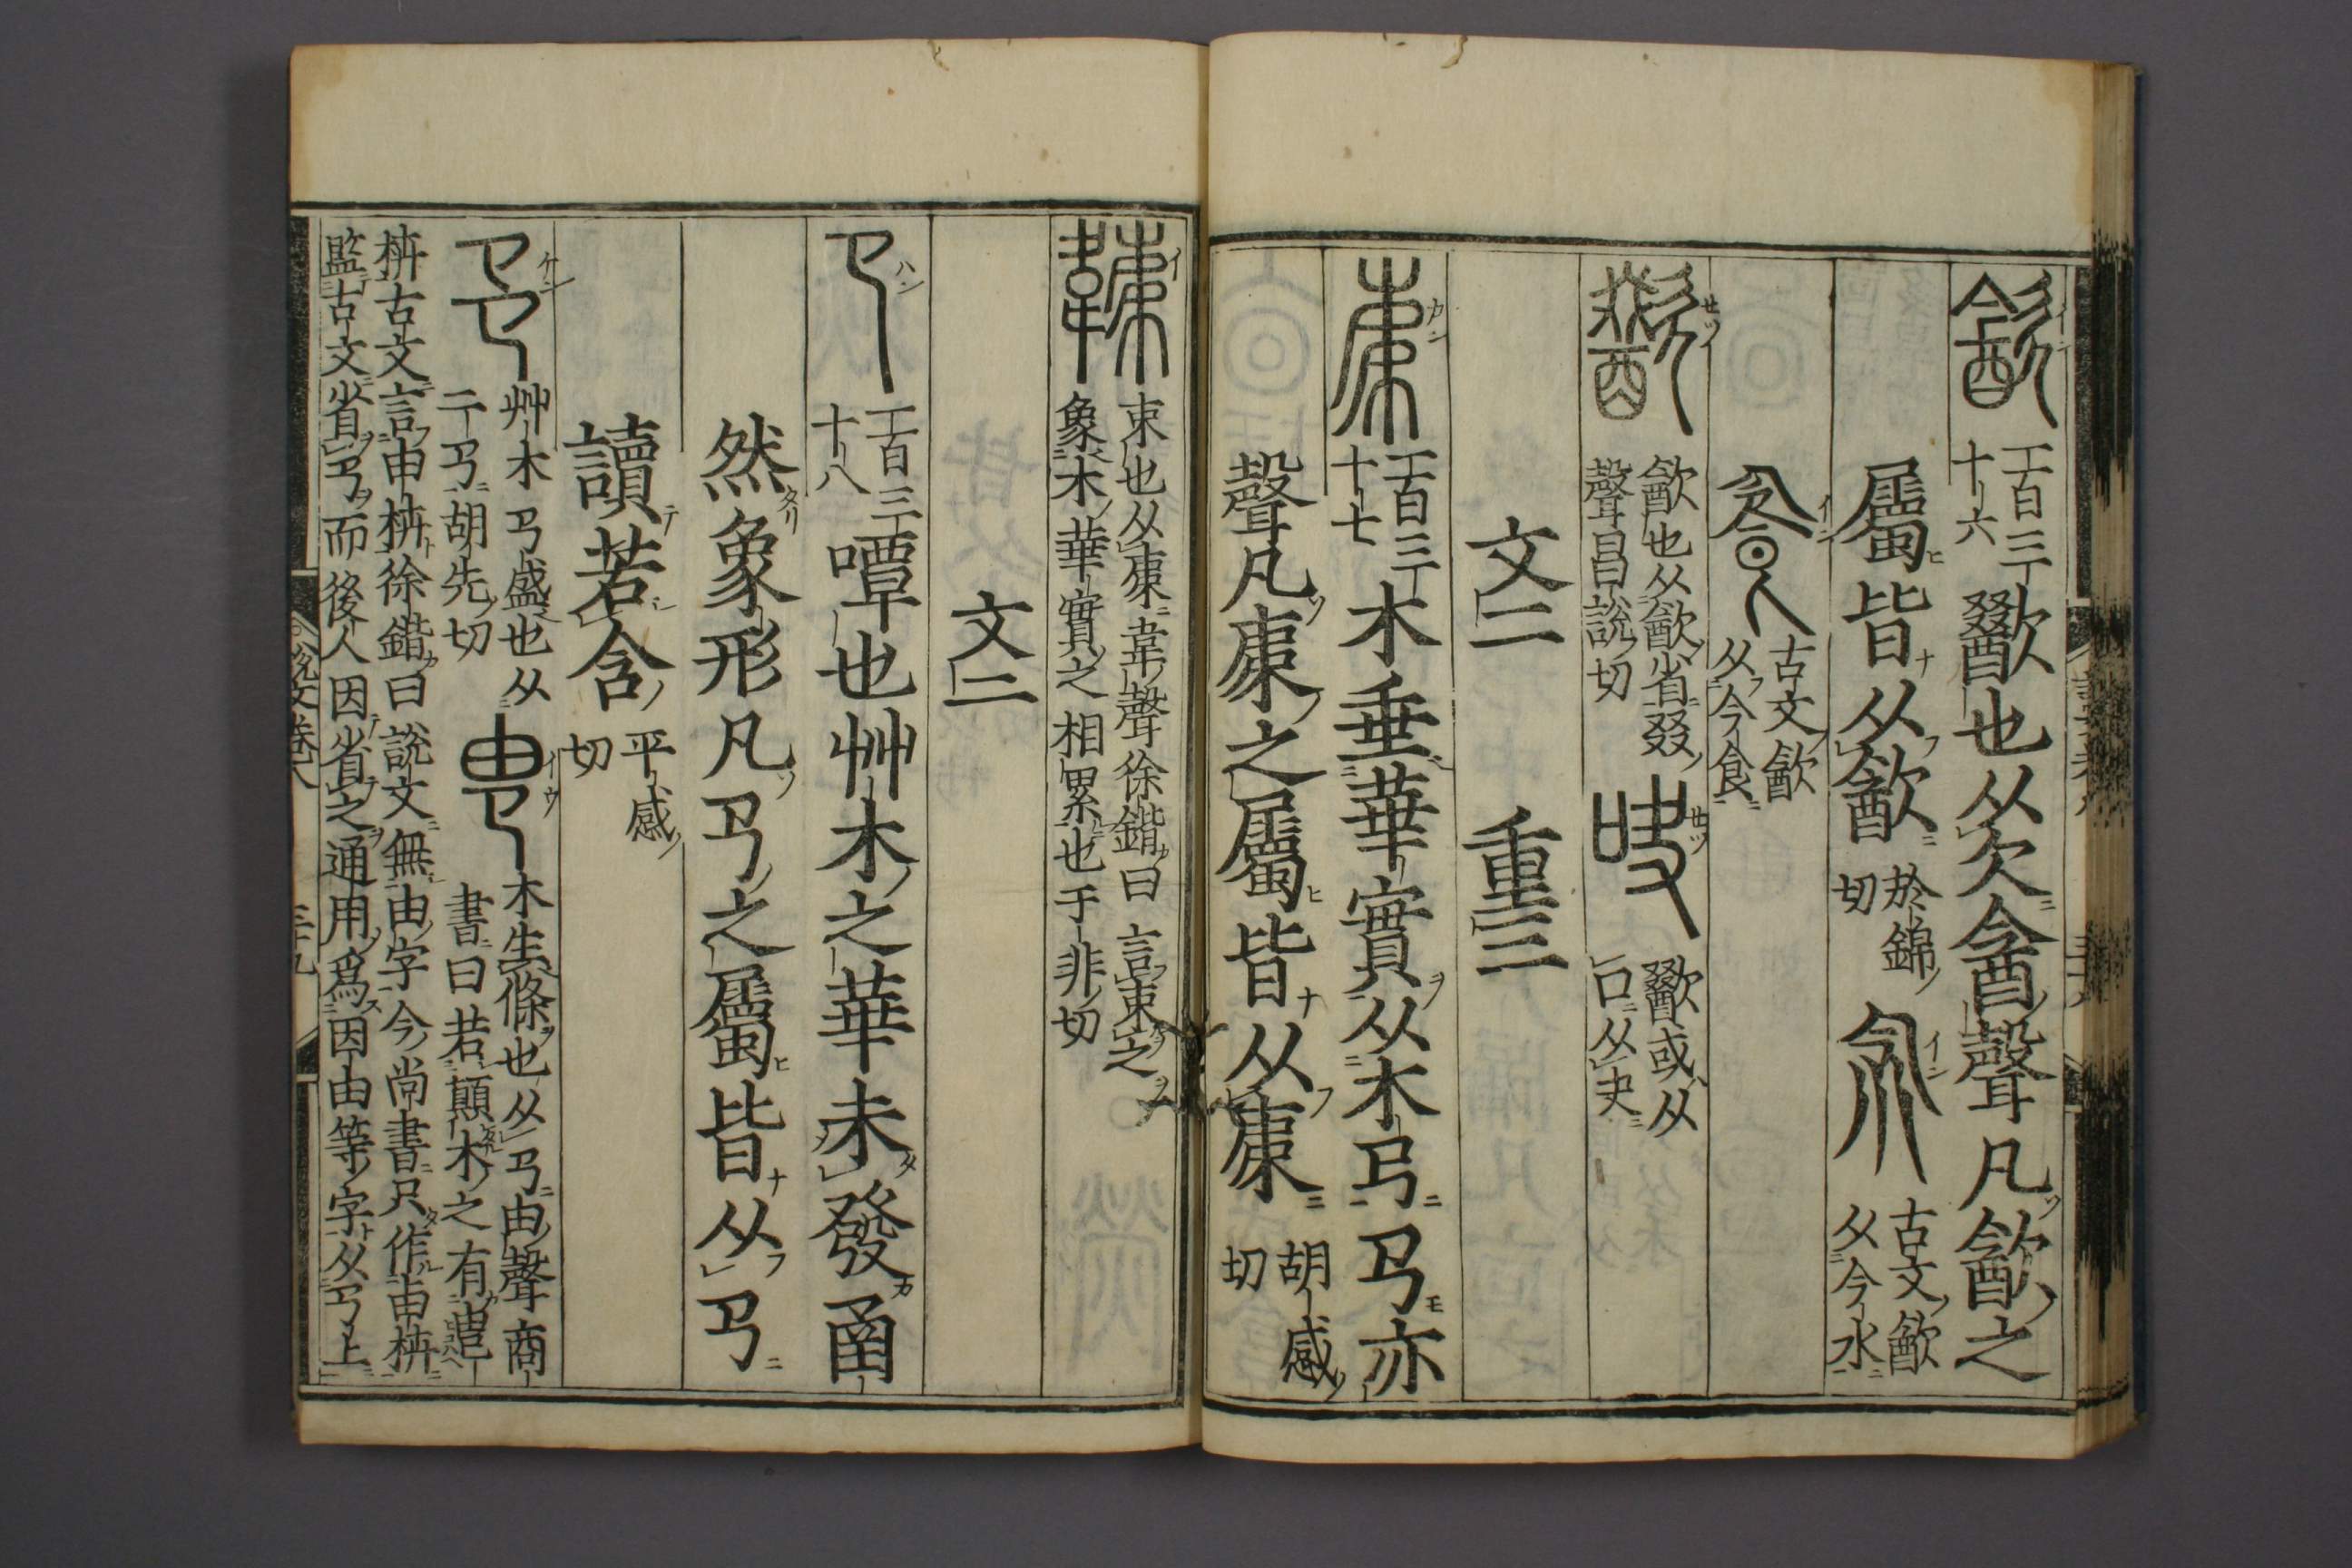 㱃 二百三十六 歠也从欠酓聲凡㱃之
屬皆从㱃 於錦切 㱃 古文㱃从今水
㱃 古文㱃从今食
歠 㱃也从㱃省叕聲昌說切 吷 歠或从口从夬
文二 重三
𣐺 二百三十七 木垂華實从木𢎘𢎘亦
聲凡𣐺之屬皆从𣐺 胡感切
𣐻 束也从𣐺韋聲徐鍇曰言束之
象木華實之相累也于非切
文二
𢎘 二百三十八 嘾也艸木之華未發甬
然象形凡𢎘之屬皆从𢎘
讀若含 平感切
艸木𢎘盛也从
二𢎘胡先切
木生條也从𢎘由聲商
書曰若顛木之有
枿古文言由枿徐鍇曰說文無由字今尚書只作由枿
監古文省𢎘而後人因省之通用爲因由等字从𢎘上
說文卷八 三十九